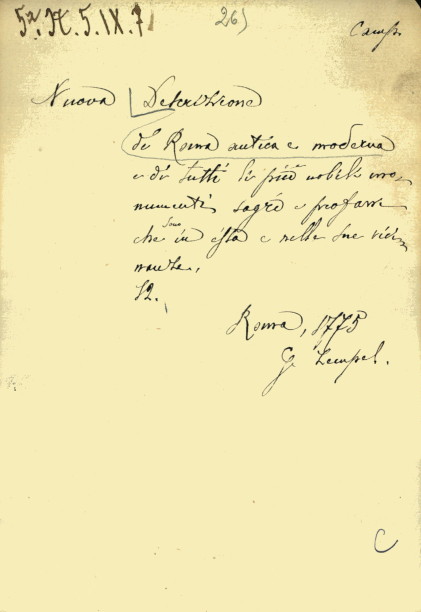 5ª. H. 5. IX. 7
26)
Camp.
Nuova Descrizione
di Roma antica e moderna
e di tutti li più nobili mo-
numenti sagri e profani
che sono in essa e nelle sue vici-
nanze,
12.
Roma, 1775
G. Zempel.
C